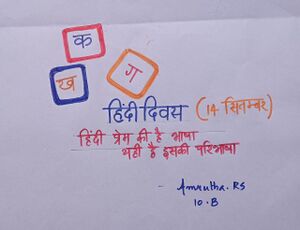 क
ख
ग
हिंदी दिवस (14 सितम्बर)
हिंदी प्रेम की है भाषा
यही है इसकी परिभाषा
Amrutha. RS
10.B